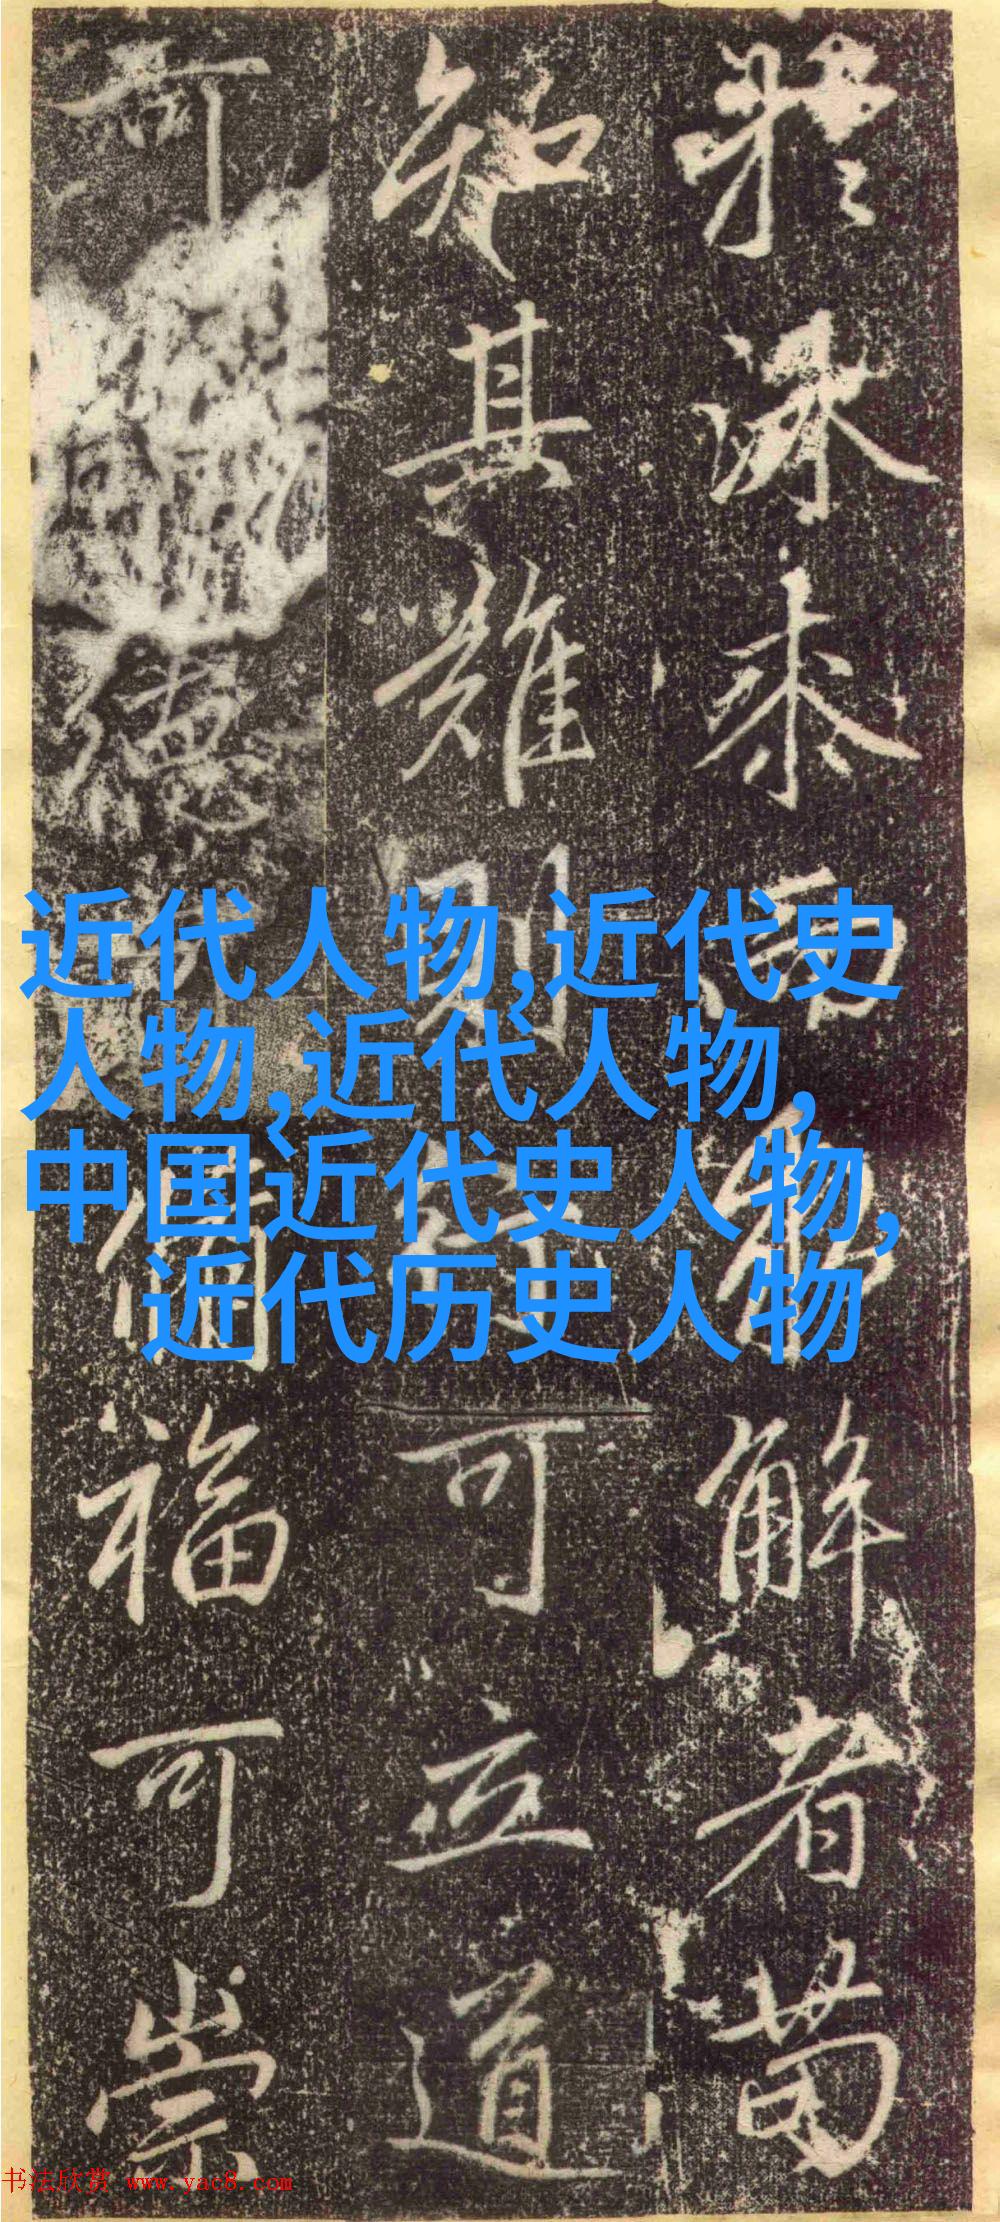 近代人物,近代史
人物,近代人物,
中国近代史人物,
近代历史人物
於深求而解者苟
知其難則可立道
可德福可崇
书法欣赏 www.yac8.com